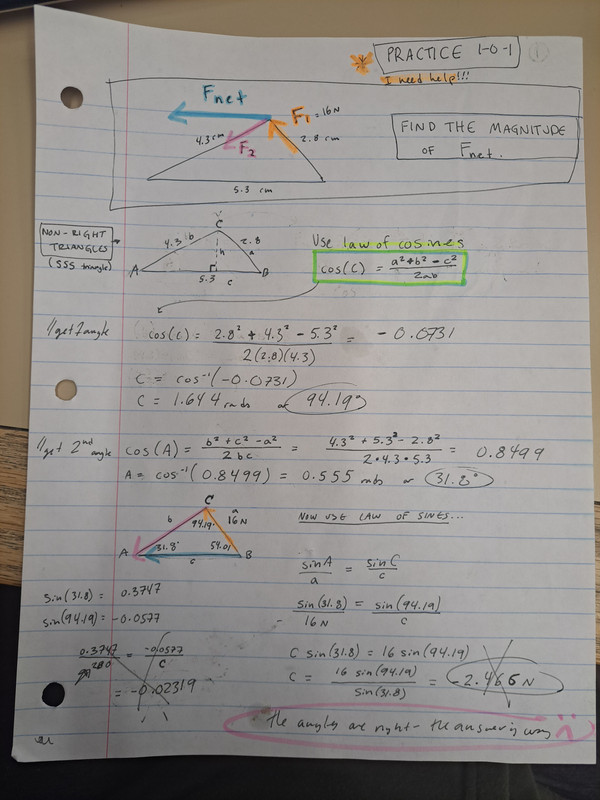 PRACTICE 1-0-1
1
I need help!!!
Fnet
F₁ = 16N
4.3 cm
F₂
2.8 cm
5.3 cm
FIND THE MAGNITUDE
OF Fnet.
NON-RIGHT
TRIANGLES
(SSS triangle)
C
4.3 b
2.8
a
h
A
5.3
c
B
Use law of cosines
cos(C) = a² + b² - c² / 2ab
//get 1 angle
cos(C) = 2.8² + 4.3² - 5.3² / 2(2.8)(4.3) = -0.0731
C = cos⁻¹(-0.0731)
C = 1.644 rads or 94.19°
//get 2nd angle
cos(A) = b² + c² - a² / 2bc = 4.3² + 5.3² - 2.8² / 2•4.3•5.3 = 0.8499
A = cos⁻¹(0.8499) = 0.555 rads or 31.8°
C
b
94.19°
a
16N
A
31.8°
54.01
B
c
NOW USE LAW OF SINES...
sinA / a = sinC / c
sin(31.8) = 0.3747
sin(94.19) = -0.0577
sin(31.8) / 16N = sin(94.19) / c
0.3747 / = -0.0577 / c
= -0.02319
C sin(31.8) = 16 sin(94.19)
C = 16 sin(94.19) / sin(31.8) = -2.465 N
the angles are right - the answer is wrong